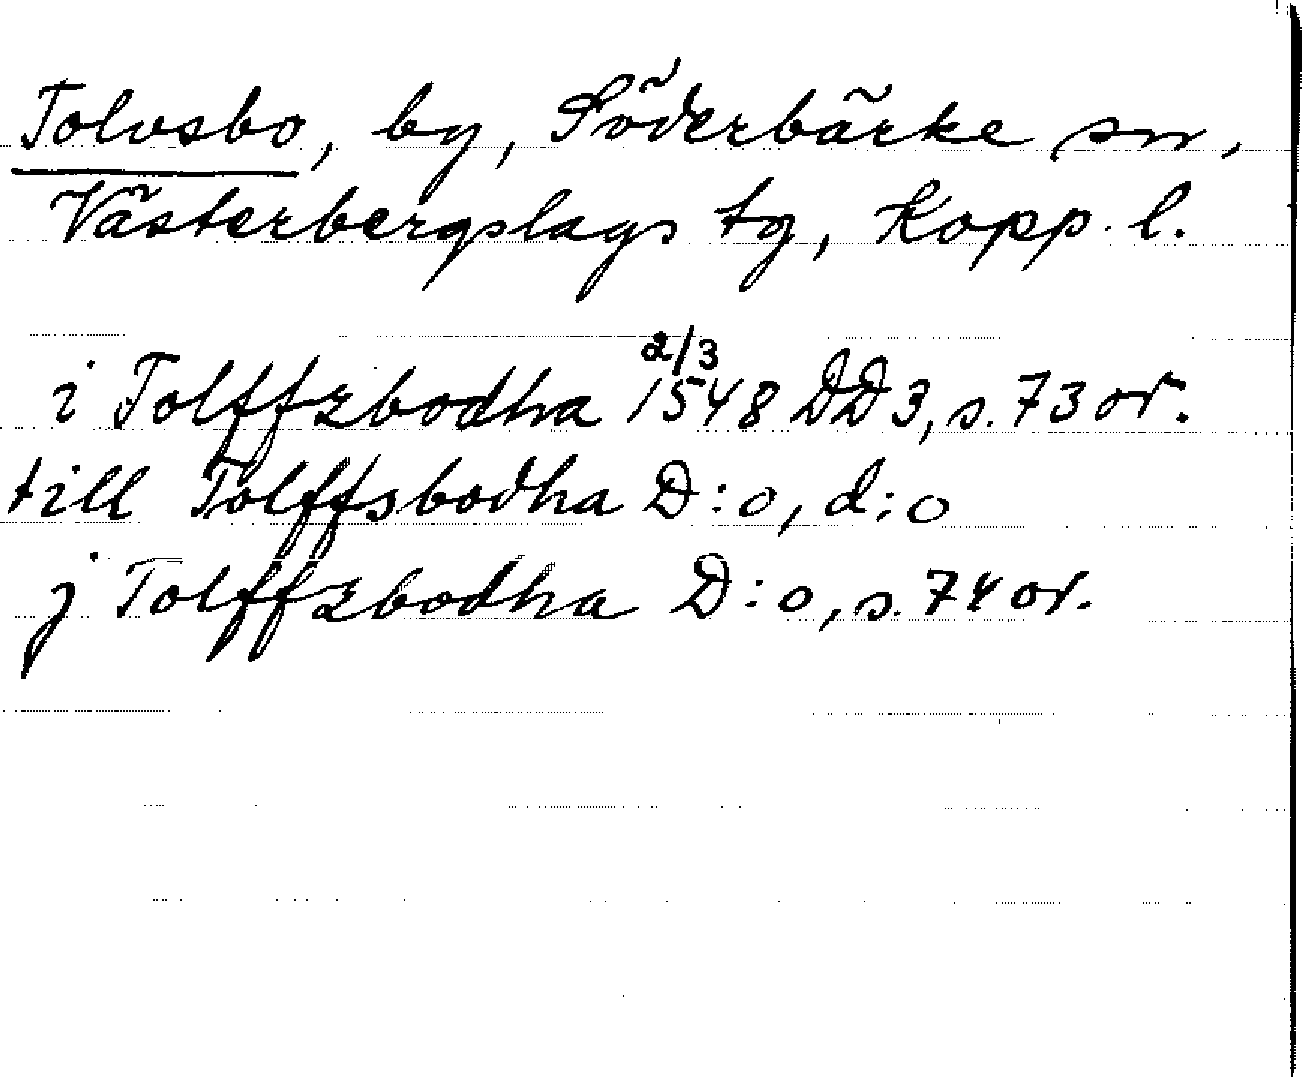 Tolvsbo, by, Söderbärke sn,
Västerbergslags tg, Kopp. l.
2/3
i Tolffzbodha 1548 DD 3, s. 73 or.
till Tolffsbodha D:o, d:o
j Tolffzbodha D:o, s. 74 or.